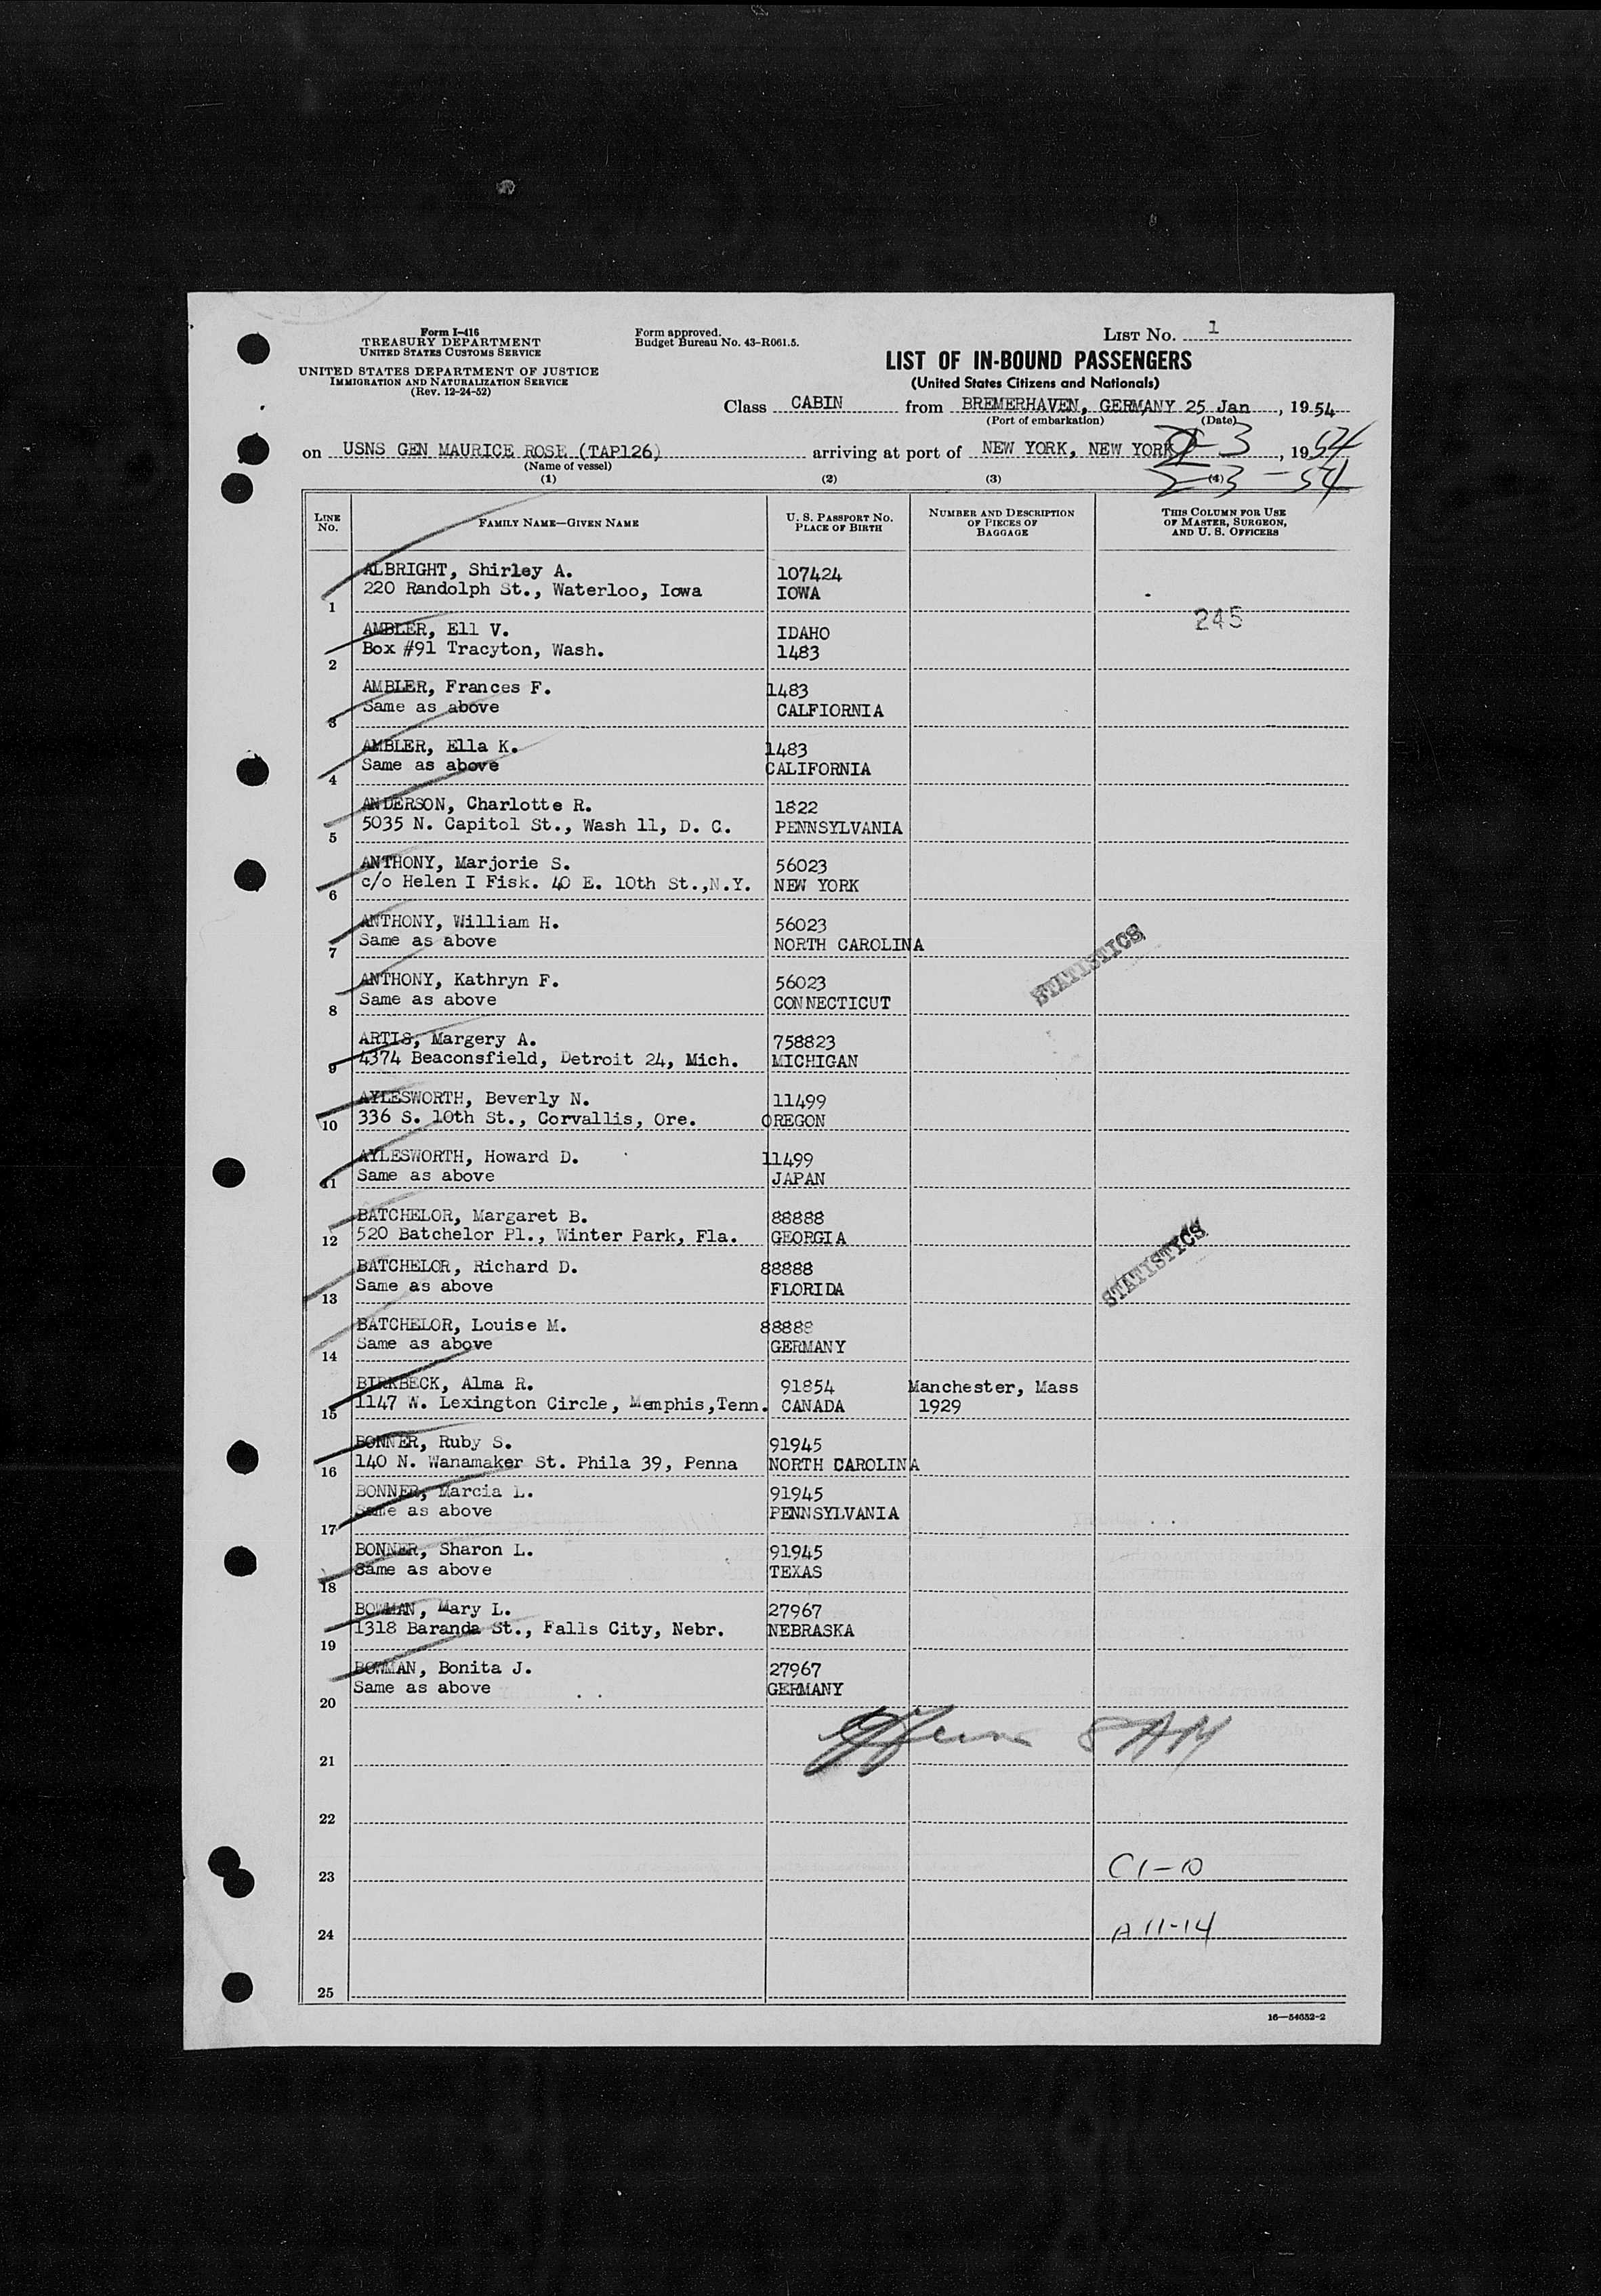 Form I-416
TREASURY DEPARTMENT
UNITED STATES CUSTOMS SERVICE
UNITED STATES DEPARTMENT OF JUSTICE
IMMIGRATION AND NATURALIZATION SERVICE
(Rev. 12-24-52)
Form approved.
Budget Bureau No. 43-R061.5.
LIST NO. 1
LIST OF IN-BOUND PASSENGERS
(United States Citizens and Nationals)
Class CABIN from BREMERHAVEN, GERMANY 25 Jan, 1954
(Port of embarkation) (Date)
on USNS GEN MAURICE ROSE (TAP126) arriving at port of NEW YORK, NEW YORK 2-3, 1954
(Name of vessel)
2-3-54
(1) (2) (3) (4)
LINE NO.
FAMILY NAME—GIVEN NAME
U. S. PASSPORT NO.
PLACE OF BIRTH
NUMBER AND DESCRIPTION
OF PIECES OF
BAGGAGE
THIS COLUMN FOR USE
OF MASTER, SURGEON,
AND U. S. OFFICERS
ALBRIGHT, Shirley A. 107424
1 220 Randolph St., Waterloo, Iowa IOWA
245
AMBLER, Ell V. IDAHO
2 Box #91 Tracyton, Wash. 1483
AMBLER, Frances F. 1483
3 Same as above CALFIORNIA
AMBLER, Ella K. 1483
4 Same as above CALIFORNIA
ANDERSON, Charlotte R. 1822
5 5035 N. Capitol St., Wash 11, D. C. PENNSYLVANIA
ANTHONY, Marjorie S. 56023
6 c/o Helen I Fisk. 40 E. 10th St.,N.Y. NEW YORK
ANTHONY, William H. 56023
7 Same as above NORTH CAROLINA
STATISTICS
ANTHONY, Kathryn F. 56023
8 Same as above CONNECTICUT
ARTIS, Margery A. 758823
9 4374 Beaconsfield, Detroit 24, Mich. MICHIGAN
AYLESWORTH, Beverly N. 11499
10 336 S. 10th St., Corvallis, Ore. OREGON
AYLESWORTH, Howard D. 11499
11 Same as above JAPAN
BATCHELOR, Margaret B. 88888
12 520 Batchelor Pl., Winter Park, Fla. GEORGIA
STATISTICS
BATCHELOR, Richard D. 88888
13 Same as above FLORIDA
BATCHELOR, Louise M. 88888
14 Same as above GERMANY
BIRKBECK, Alma R. 91854 Manchester, Mass
15 1147 W. Lexington Circle, Memphis,Tenn. CANADA 1929
BONNER, Ruby S. 91945
16 140 N. Wanamaker St. Phila 39, Penna NORTH CAROLINA
BONNER, Marcia L. 91945
17 Same as above PENNSYLVANIA
BONNER, Sharon L. 91945
18 Same as above TEXAS
BOWMAN, Mary L. 27967
19 1318 Baranda St., Falls City, Nebr. NEBRASKA
BOWMAN, Bonita J. 27967
20 Same as above GERMANY
21
22
23 C1-10
24 A 11-14
25
16—54652-2